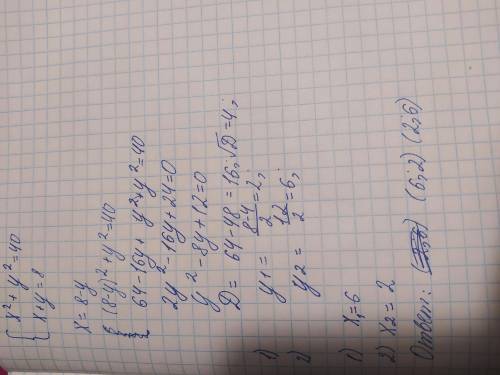 { x² + y² = 40
x + y = 8
x = 8-y
(8-y)² + y² = 40
64 - 16y + y² + y² = 40
2y² - 16y + 24 = 0
y² - 8y + 12 = 0
D = 64 - 48 = 16; √D = 4;
1) y1 = 8-4/2 = 2;
2) y2 = 12/2 = 6;
1) x1 = 6
2) x2 = 2
Ответ: (6; 2) (2; 6)